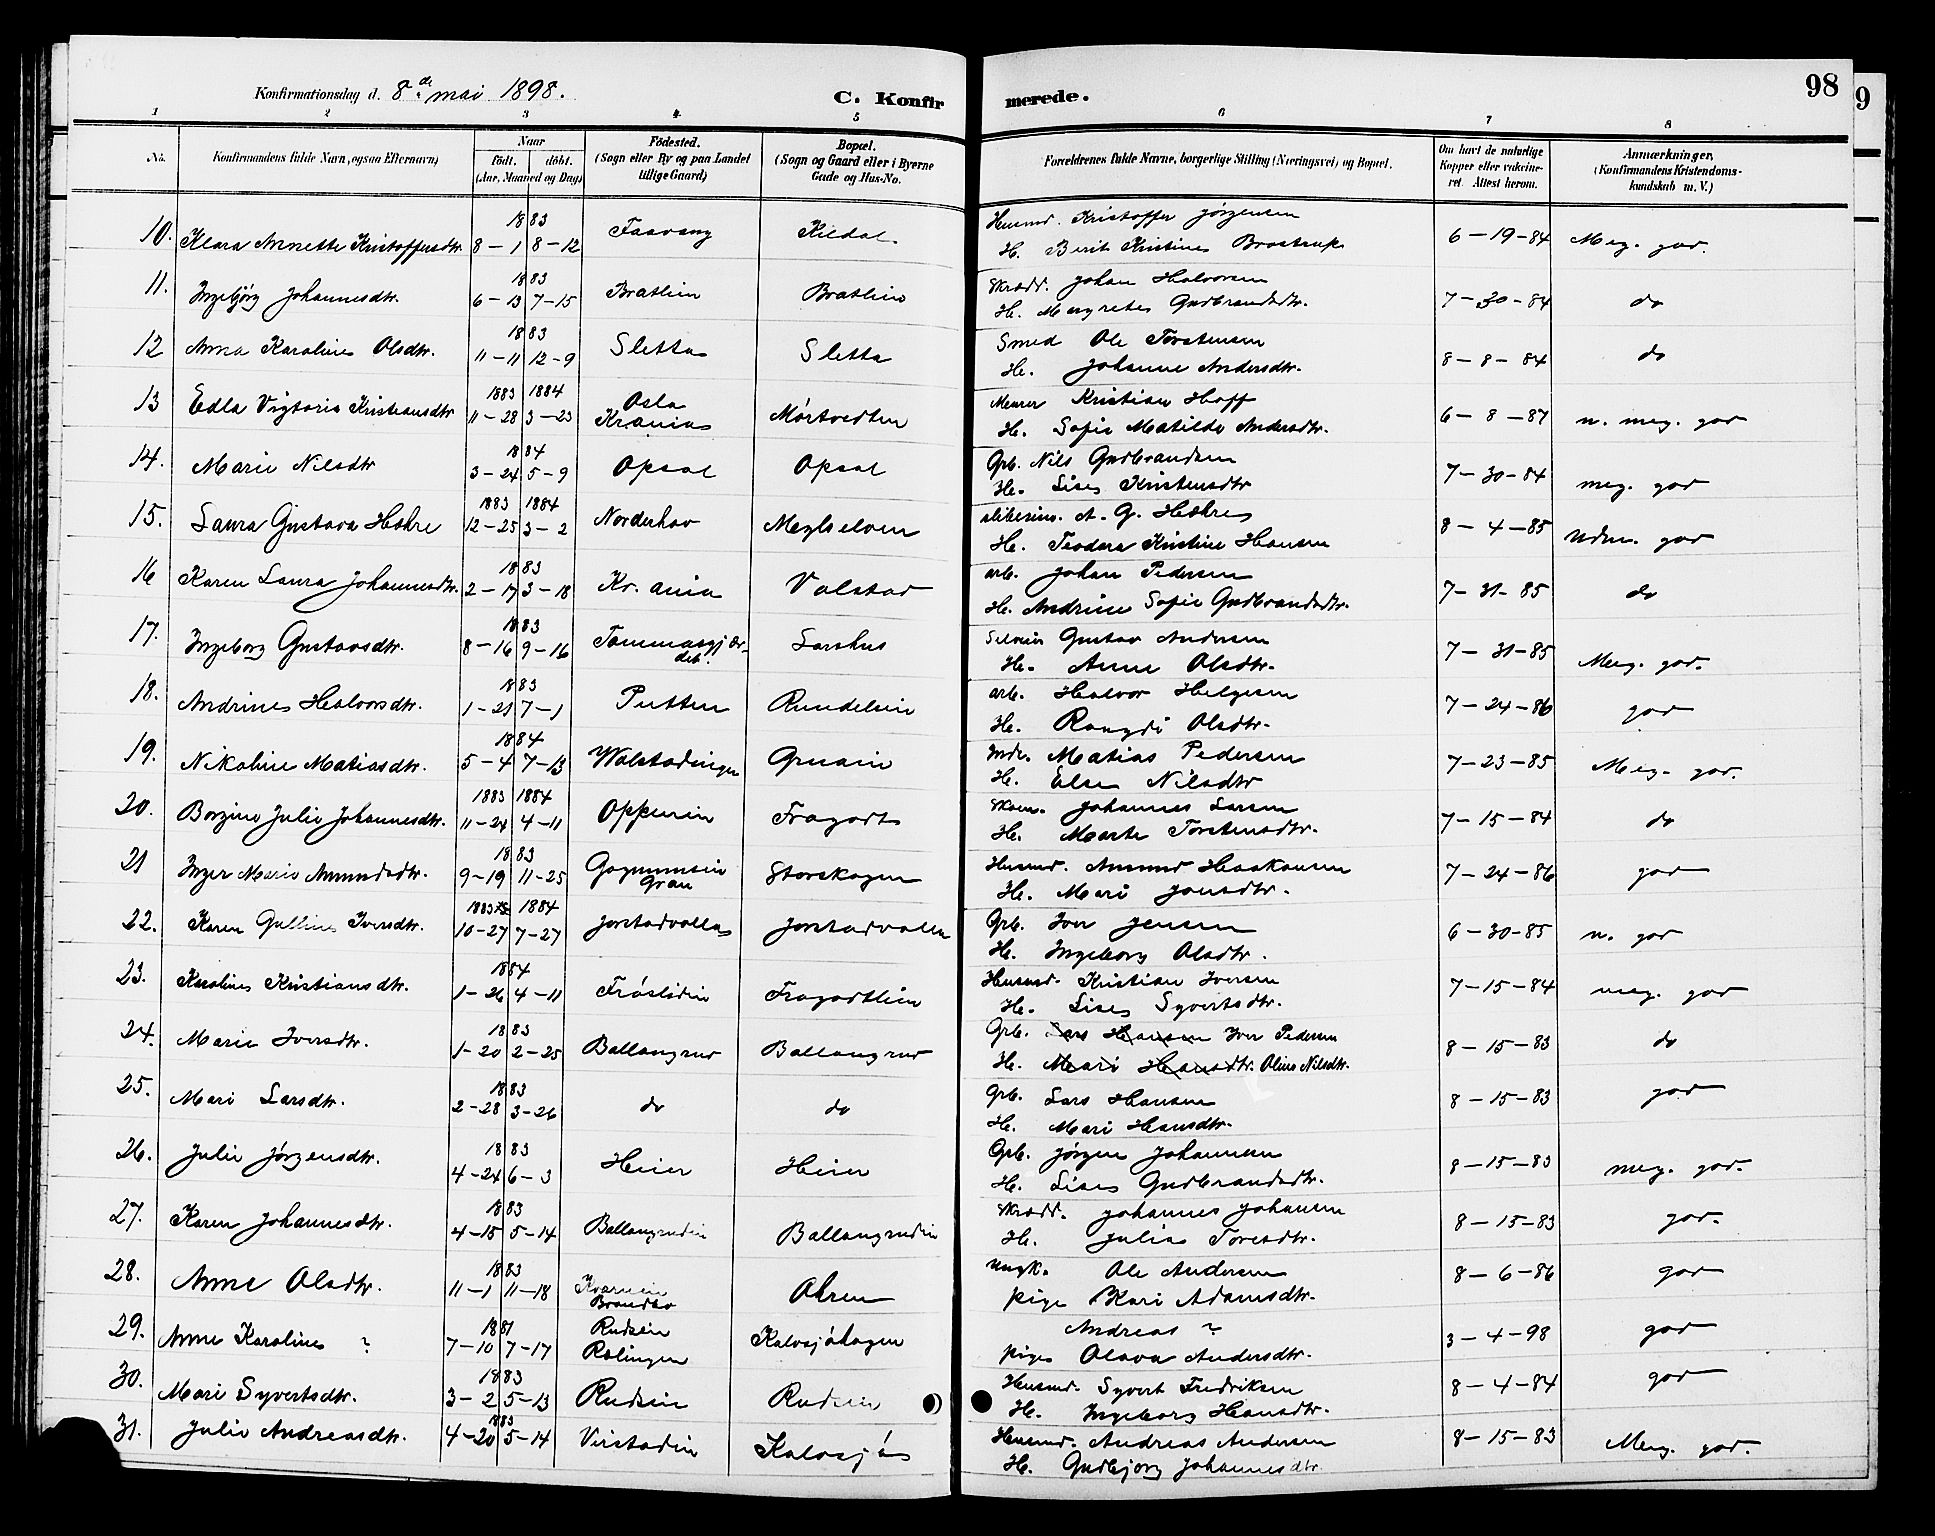 98
9
Konfirmationsdag d. 8de mai 1898.
C. Konfirmerede.
1 2 3 4 5 6 7 8
No.
Konfirmandens fulde Navn, ogsaa Efternavn)
Naar
födt. döbt.
(Aar, Maaned og Dag)
Födested.
(Sogn eller By og paa Landet
tillige Gaard)
Bopæl.
(Sogn og Gaard eller i Byerne
Gade og Hus-No.
Forældrenes fulde Navne, borgerlige Stilling (Næringsvei) og Bopæl.
Om havt de naturlige
Kopper eller vakcine-
ret. Attest herom.
Anmærkninger,
(Konfirmandens Kristendoms-
kundskab m. V.)
10. Klara Annette Kristoffersdtr. 1883 8-1 8-12 Faavang Kildal Husmd. Kristoffer Jørgensen
H. Berit Kristine Brostrup 6-19-84 Meg. god.
11. Ingebjörg Johannesdtr. 1883 6-13 7-15 Bratlien Bratlien Skrædd. Johan Halvorsen
H. Margrete Gudbrandsdtr. 7-30-84 do
12 Anna Karoline Olsdtr. 1883 11-11 12-9 Sletta Sletta Smed Ole Torstensen
H. Johanne Andersdtr. 8-8-84 do
13 Edla Vigtoria Kristiansdtr 1883 1884 11-28 3-23 Oslo
Krania Mørtvedten Murer Kristian Hoff
H. Sofie Matilde Andersdtr. 6-8-87 n. meg. god
14. Marie Nilsdtr 1884 3-24 5-9 Opsal Opsal Grb. Nils Gudbrandsen
H. Lise Kristensdtr 7-30-84 meg. god
15. Laura Gustava Hækre 1883 1884 12-25 3-2 Norderhov A. G. Hækre
H. Teodora Kristine Hansen 8-4-85 Udm. god
16 Karen Laura Johannesdtr. 1883 2-17 3-18 Kr.ania Volstad arb. Johan Pedersen
H. Andrine Sofie Gudbrandsdtr. 7-31-85 do
17. Ingeborg Gustavsdtr. 1883 8-16 9-16 Tommasgjær-
det. Larshus Selveier Gustav Andersen
H. Anne Olsdtr. 7-31-85 Meg. god.
18. Andrine Halvorsdtr. 1883 1-21 7-1 Putten Rundelien arb. Halvor Helgesen
H. Rangdi Olsdtr. 7-24-86 god
19. Nikoline Matiasdtr. 1884 5-4 7-13 Wolstadingen Gruain Inder. Matias Pedersen
H. Else Nilsdtr 7-23-85 Meg. god.
20. Borgine Julie Johannesdtr. 1883 1884 11-24 4-11 Oppenein Fragodt Skom. Johannes Larsen
H. Marte Torstensdtr. 7-15-84 do
21 Inger Marie Amundsdtr. 1883 9-19 11-25 Gran Storskogen Husmd. Amund Haakonsen
H. Mari Jonsdtr. 7-24-86 god
22. Karen Gulline Iversdtr. 1883 1884 10-27 7-27 Jorstadvolla Jorstadvolla Grb. Iver Jensen
H. Ingeborg Olsdtr. 6-30-85 n. god
23. Karoline Kristiansdtr. 1884 1-26 4-11 Fröslidien Fragodtlien Husmd. Kristian Iversen
H. Lise Syvertsdtr. 7-15-84 meg. god
24. Marie Iversdtr. 1883 1-20 2-25 Ballangrud Ballangrud Grb. Lars Hansen Iver Pedersen
H. Mari Hansdtr. Oline Nilsdtr. 8-15-83 do
25. Mari Larsdtr. 1883 2-28 3-26 do do Grb. Lars Hansen
H. Mari Hansdtr. 8-15-83 god
26. Julie Jörgensdtr. 1883 4-24 6-3 Heier Heier Grb. Jörgen Johannesen
H. Lise Gudbrandsdtr. 8-15-83 meg. god.
27. Karen Johannesdtr. 1883 4-15 5-14 Ballangrudein Ballangrudein Skrædd. Johannes Johansen
H. Julia Toresdtr. 8-15-83 god.
28. Anne Olsdtr. 1883 11-1 11-18 Kværnein
Brandbo Ohren Ungk. Ole Andersen
pige Kari Adamsdtr. 8-6-86 god
29. Anne Karoline ? 1881 7-10 7-17 Rudsein
Rolingen Kalvsjöhagen Andreas ?
pige Olava Andersdtr. 3-4-98 god
30. Mari Syvertsdtr. 1883 3-2 5-13 Rudsein Rudsein Husmd. Syvert Fredriksen
H. Ingeborg Hansdtr. 8-4-84 god
31. Julie Andreasdtr. 1883 4-20 5-14 Virstadein Kalvsjö Husmd. Andreas Andersen
H. Gudbjorg Johannesdtr. 8-15-83 Meg. god.